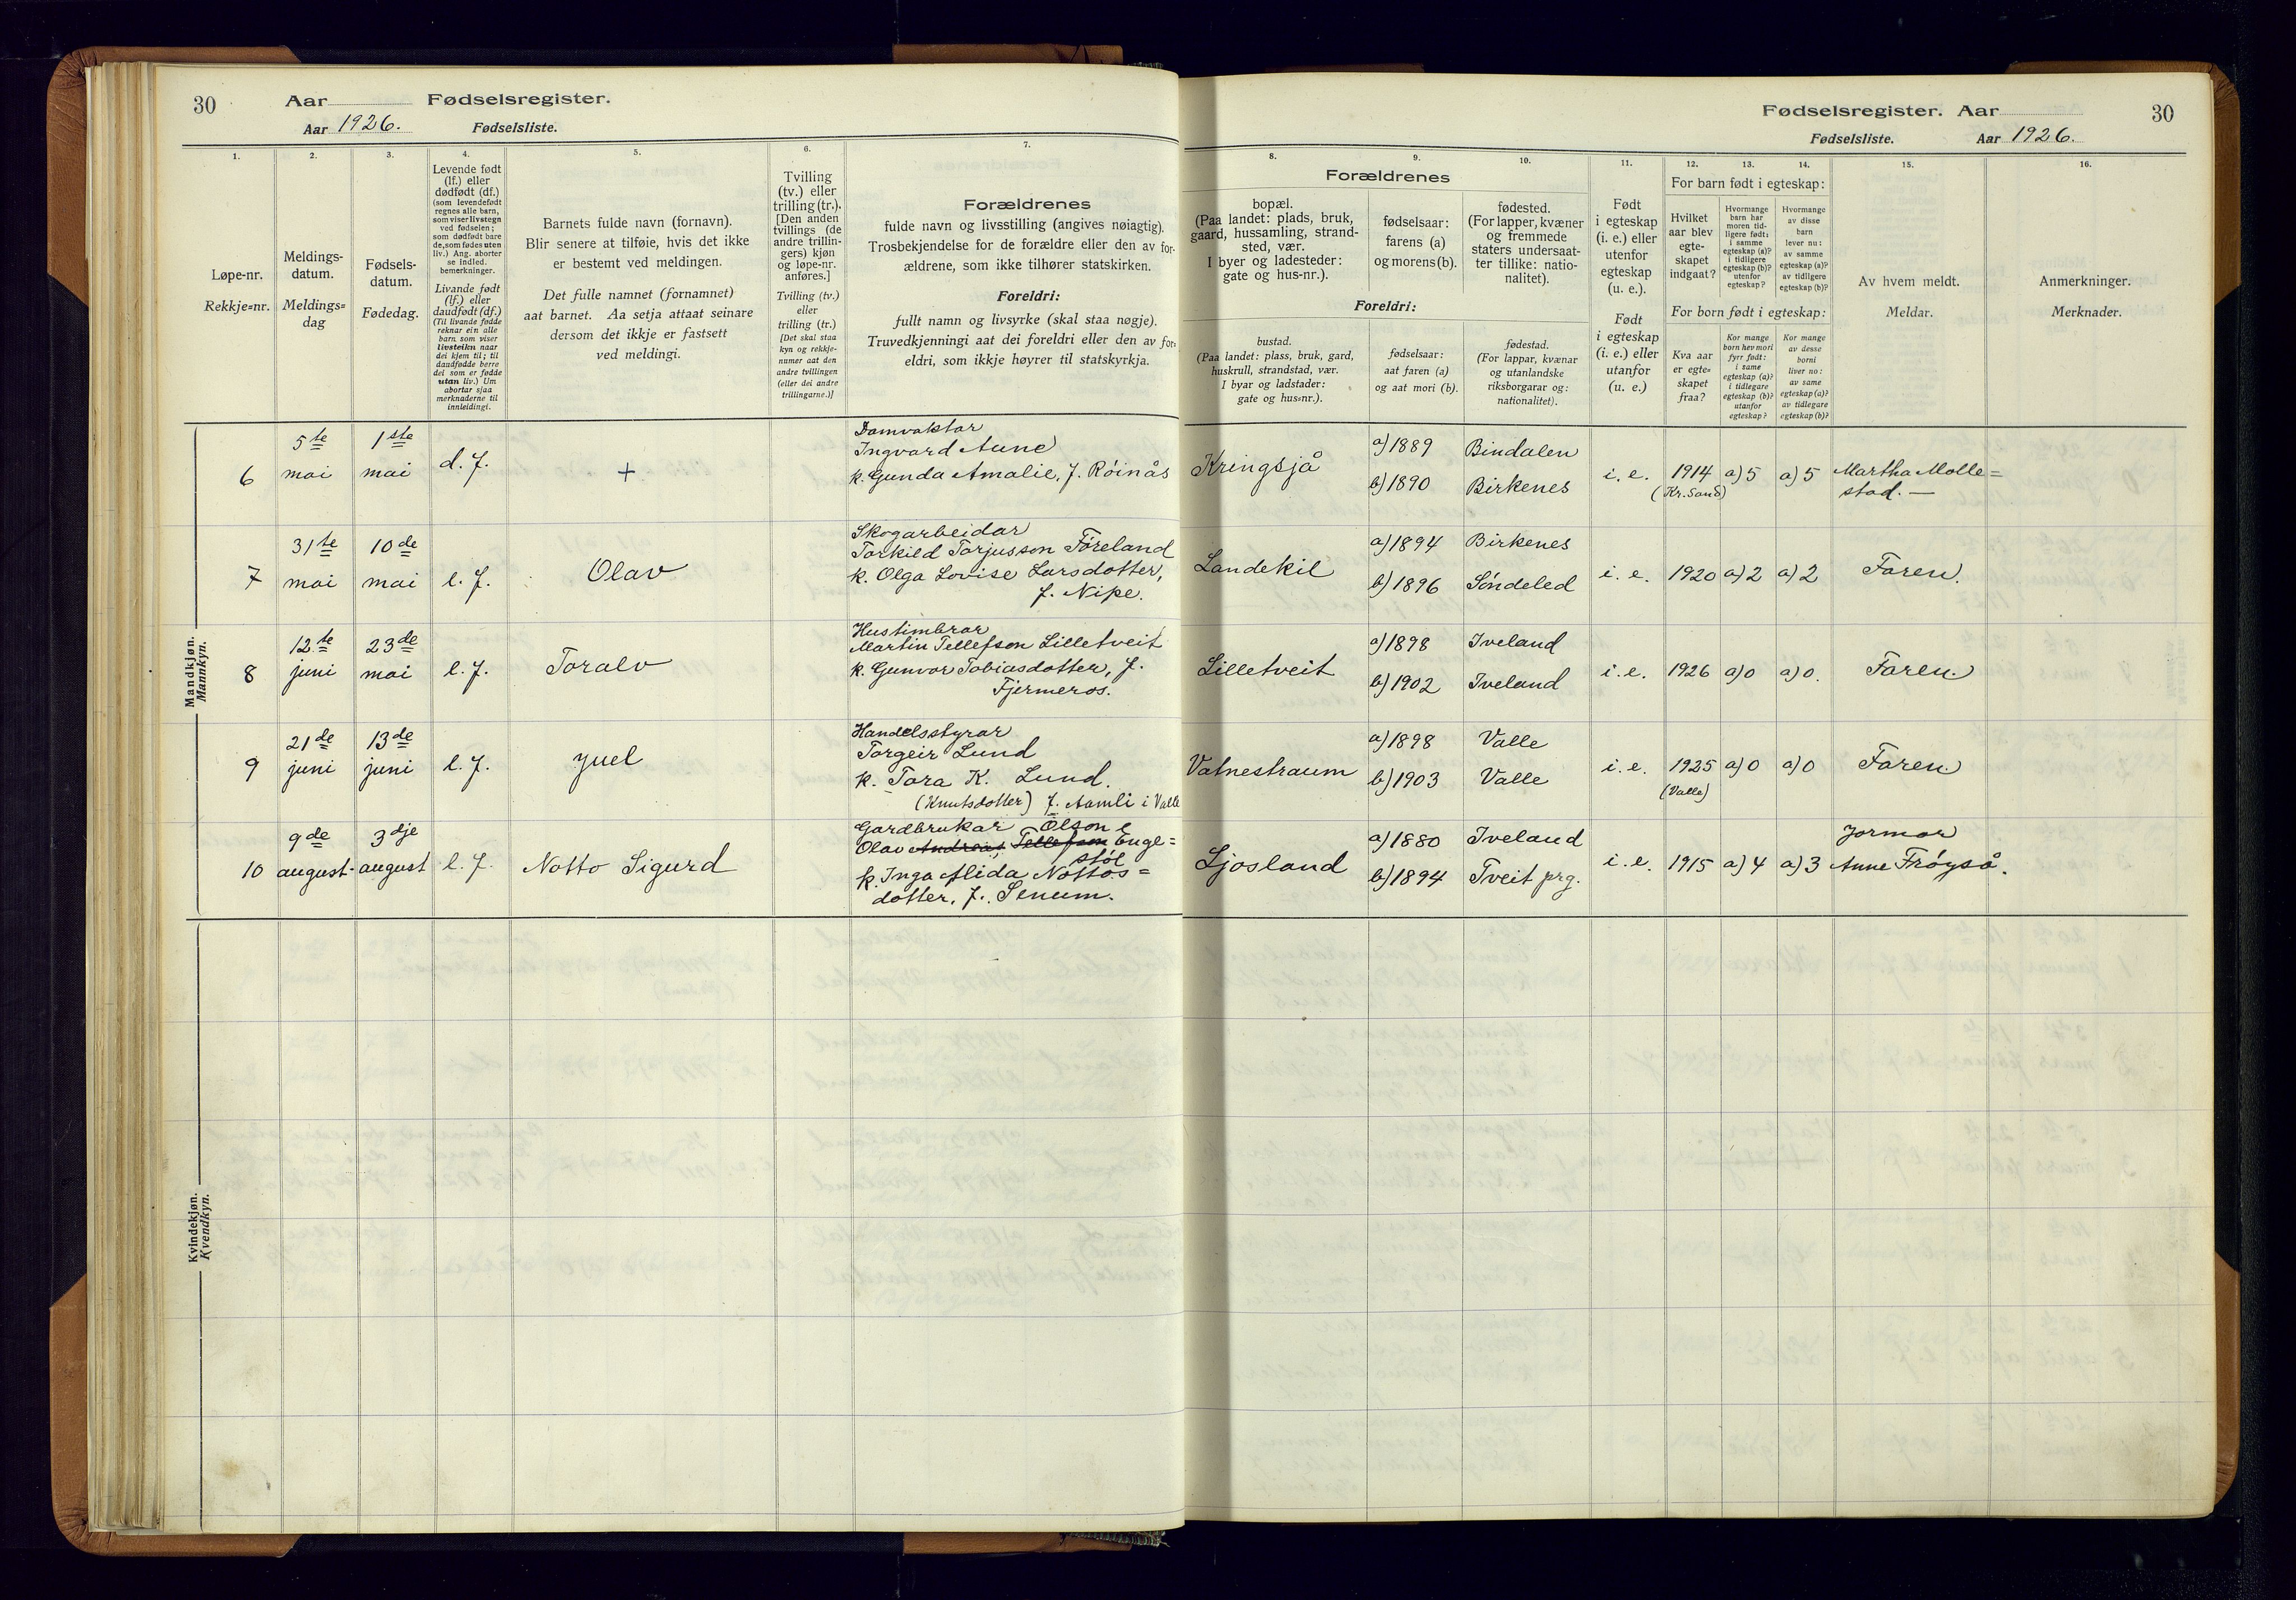 30 Aar Fødselsregister.
Aar 1926. Fødselsliste.
1. 2. 3. 4. 5. 6. 7.
Løpe-nr.
Rekkje=nr.
Meldings-
datum.
Meldings=
dag
Fødsels-
datum.
Fødedag.
Levende født
(lf.) eller
dødfødt (df.)
(som levendefødt
regnes alle barn,
som viser livstegn
ved fødselen;
som dødfødt bare
de, som fødes uten
liv.) Ang. aborter
se indled.
bemerkninger.
Livande født
(lf.) eller
daudfødt (df.)
(Til livande fødde
reknar ein alle
barn som viser
livsteikn naar
dei kjem til; til
daudfødde berre
dei som er fødde
utan liv.) Um
abortar sjaa
merknaderne til
innleidingi.
Barnets fulde navn (fornavn).
Blir senere at tilføie, hvis det ikke
er bestemt ved meldingen.
Det fulle namnet (fornamnet)
aat barnet. Aa setja attaat seinare
dersom det ikkje er fastsett
ved meldingi.
Tvilling
(tv.) eller
trilling (tr.).
[Den anden
tvillings (de
andre trillin-
gers) kjøn
og løpe-nr.
anføres.]
Tvilling (tv.)
eller
trilling (tr.)
[Det skal staa
kyn og rekkje-
numer aat den
andre tvillingen
(eller dei andre
trillingarne.)]
Forældrenes
fulde navn og livsstilling (angives nøiagtig).
Trosbekjendelse for de forældre eller den av for-
ældrene, som ikke tilhører statskirken.
Foreldri:
fullt namn og livsyrke (skal staa nøgje).
Truvedkjenningi aat dei foreldri eller den av for=
eldri, som ikkje høyrer til statskyrkja.
Mandkjøn.
Mannkyn.
6 5te mai 1ste mai d. f. +
Damvaktar
Ingvard Aune
k. Gunda Amalie, f. Röinås
7 31te mai 10de mai l. f. Olav
Skogarbeidar
Torkild Torjusson Föreland
k. Olga Lovise Larsdotter,
f. Nipe.
8 12te juni 23de mai l. f. Toralv
Hustimbrar
Martin Tellefson Lilletveit
k. Gunvor Tobiasdotter, f.
Fjermeros.
9 21de juni 13de juni l. f. Juel
Handelsstyrar
Torgeir Lund
k. Tora K. Lund.
(Knutsdotter) f. Aamli i Valle
10 9de august 3dje august l. f. Notto Sigurd
Gardbrukar Olson
Olav Andreas Tellefson Enge=
støl
k. Inga Alida Nottos=
dotter, f. Senum.
Kvindekjøn.
Kvendkyn.
Fødselsregister. Aar 30
Fødselsliste. Aar 1926.
8. 9. 10. 11. 12. 13. 14. 15. 16.
Forældrenes
bopæl.
(Paa landet: plads, bruk,
gaard, hussamling, strand-
sted, vær.
I byer og ladesteder:
gate og hus-nr.).
fødselsaar:
farens (a)
og morens (b).
fødested.
(For lapper, kvæner
og fremmede
staters undersaat-
ter tillike: natio-
nalitet).
Foreldri:
bustad.
(Paa landet: plass, bruk, gard,
huskrull, strandstad, vær.
I byar og ladstader:
gate og hus=nr.).
fødselsaar:
aat faren (a)
og aat mori (b).
fødestad.
(For lappar, kvænar
og utanlandske
riksborgarar og:
nationalitet).
Født
i egteskap
(i. e.) eller
utenfor
egteskap
(u. e.).
Født
i egteskap
(i. e.) eller
utanfor
(u. e.)
For barn født i egteskap:
Hvilket
aar blev
egte-
skapet
indgaat?
Hvormange
barn har
moren tid-
ligere født:
i samme
egteskap (a)?
i tidligere
egteskap (b)?
utenfor
egteskap?
Hvormange
av disse
barn
lever nu:
av samme
egteskap (a)?
av tidligere
egteskap (b)?
For born født i egteskap:
Kva aar
er egte=
skapet
fraa?
Kor mange
born hev mori
fyrr født:
i same
egteskap (a)?
i tidlegare
egteskap (b)?
utanfor
egteskap?
Kor mange
av desse
borni
liver no:
av same
egteskap (a)?
av tidlegare
egteskap (b)?
Av hvem meldt.
Meldar.
Anmerkninger.
Merknader.
Kringsjå a) 1889 Bindalen
b) 1890 Birkenes i. e. 1914 (Kr.sand) a) 5 a) 5 Martha Molle=
stad. —
Landekil a) 1894 Birkenes
b) 1896 Söndeled i. e. 1920 a) 2 a) 2 Faren.
Lilletveit a) 1898 Iveland
b) 1902 Iveland i. e. 1926 a) 0 a) 0. Faren.
Vatnestraum a) 1898 Valle
b) 1903 Valle i. e. 1925 (Valle) a) 0 a) 0 Faren.
Ljosland a) 1880 Iveland
b) 1894 Tveit prg. i. e. 1915 a) 4 a) 3 Jormor
Anne Fröyså.